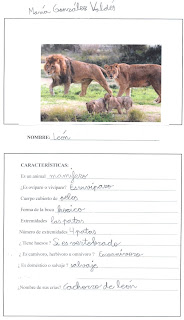 María González Valdés
NOMBRE: León
CARACTERÍSTICAS:
Es un animal mamífero
¿Es ovíparo o vivíparo? Es vivíparo
Cuerpo cubierto de pelos
Forma de la boca hocico
Extremidades las patas
Número de extremidades 4 patas
¿Tiene huesos? Si es vertebrado
¿Es carnívoro, herbívoro u omnívoro? Es carnívoro
¿Es doméstico o salvaje? salvaje
¿Nombre de sus crías? cachorro de león